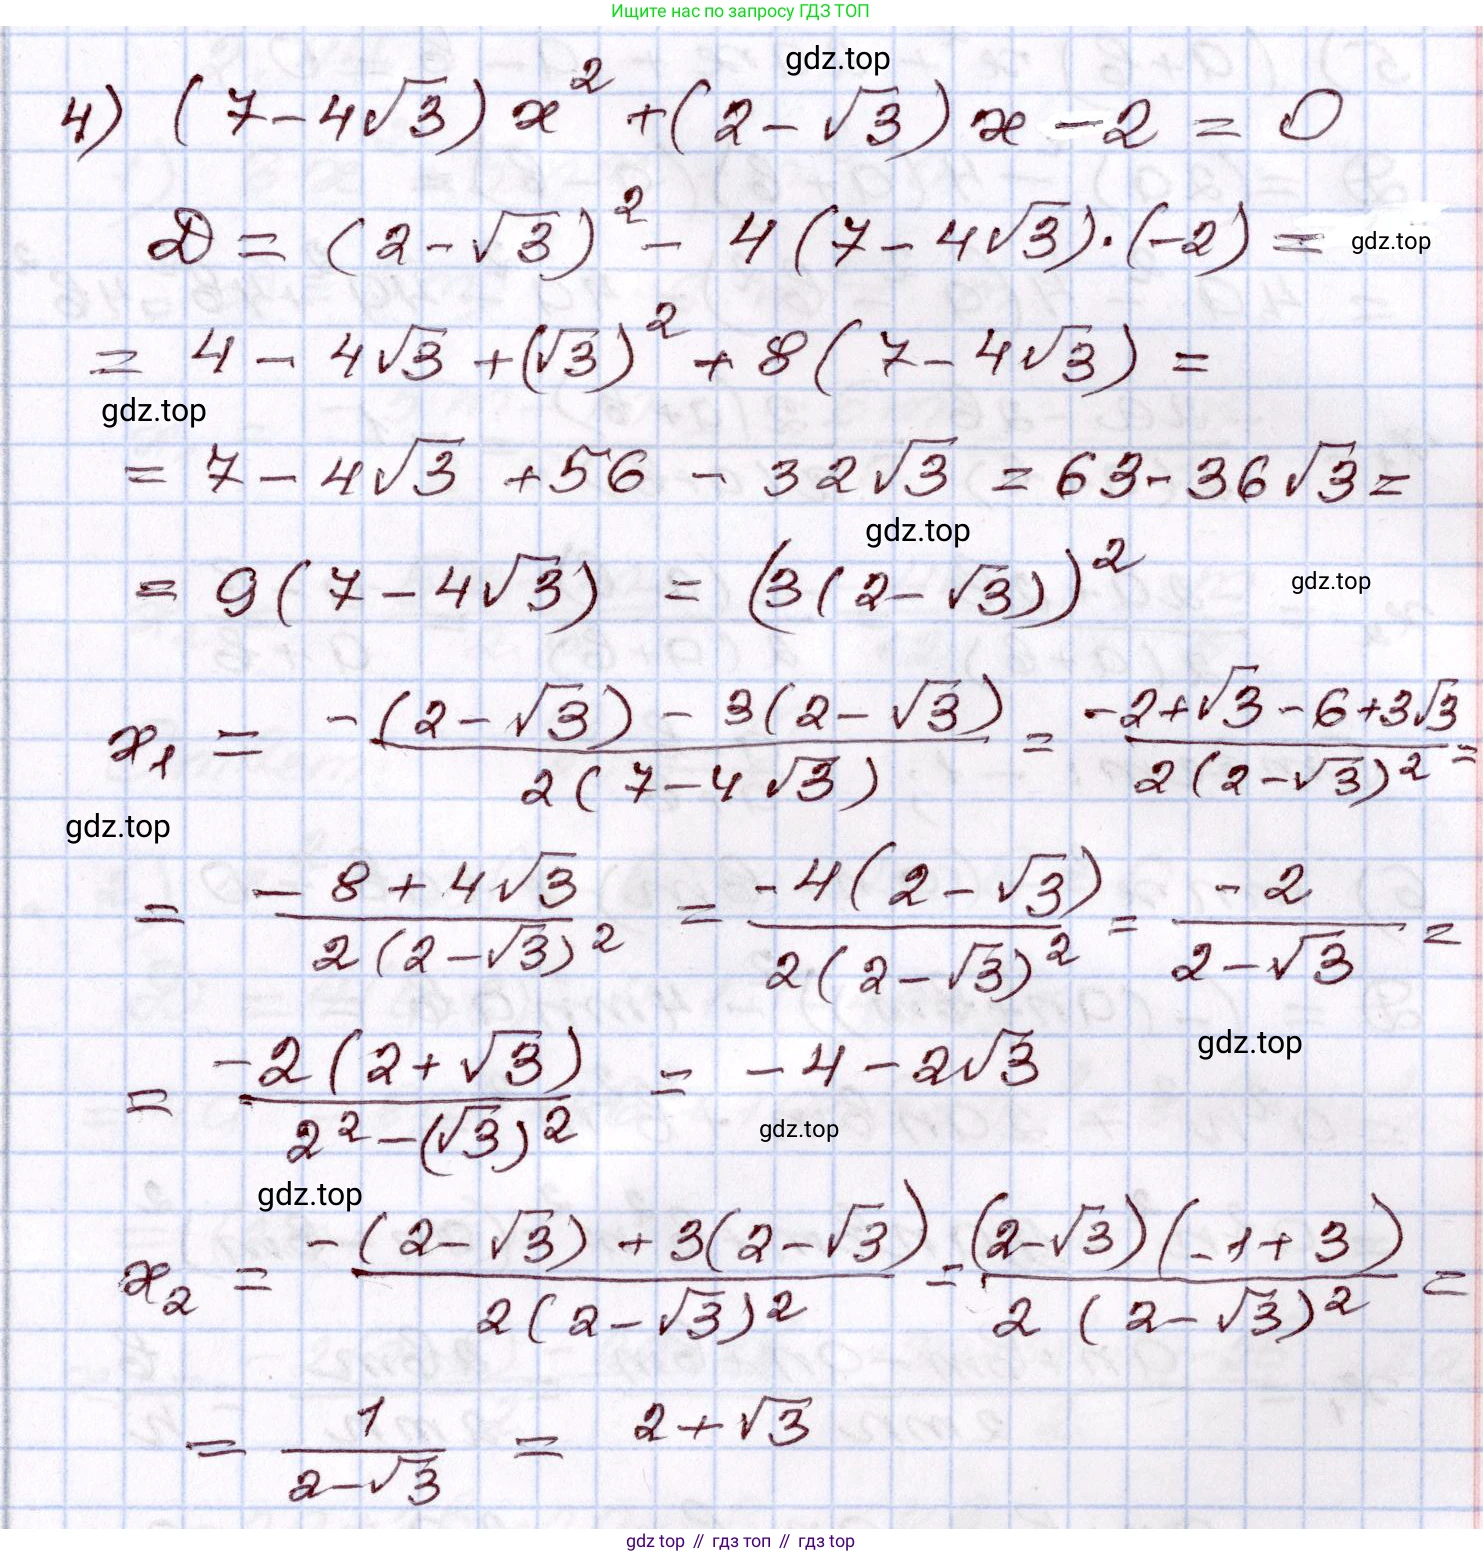 Ищите нас по запросу ГДЗ ТОП
gdz.top
4) (7-4√3)x² + (2-√3)x - 2 = 0
D = (2-√3)² - 4(7-4√3)·(-2) =
gdz.top
= 4 - 4√3 + (√3)² + 8(7-4√3) =
gdz.top
= 7 - 4√3 + 56 - 32√3 = 63 - 36√3 =
gdz.top
= 9(7-4√3) = (3(2-√3))²
gdz.top
x₁ = (-(2-√3) - 3(2-√3))/(2(7-4√3)) = (-2+√3-6+3√3)/(2(2-√3)²) =
gdz.top
= (-8+4√3)/(2(2-√3)²) = (-4(2-√3))/(2(2-√3)²) = (-2)/(2-√3) =
gdz.top
= (-2(2+√3))/(2²-(√3)²) = -4-2√3
gdz.top
gdz.top
x₂ = (-(2-√3) + 3(2-√3))/(2(2-√3)²) = ((2-√3)(-1+3))/(2(2-√3)²) =
= 1/(2-√3) = 2+√3
gdz top // гдз топ // гдз top